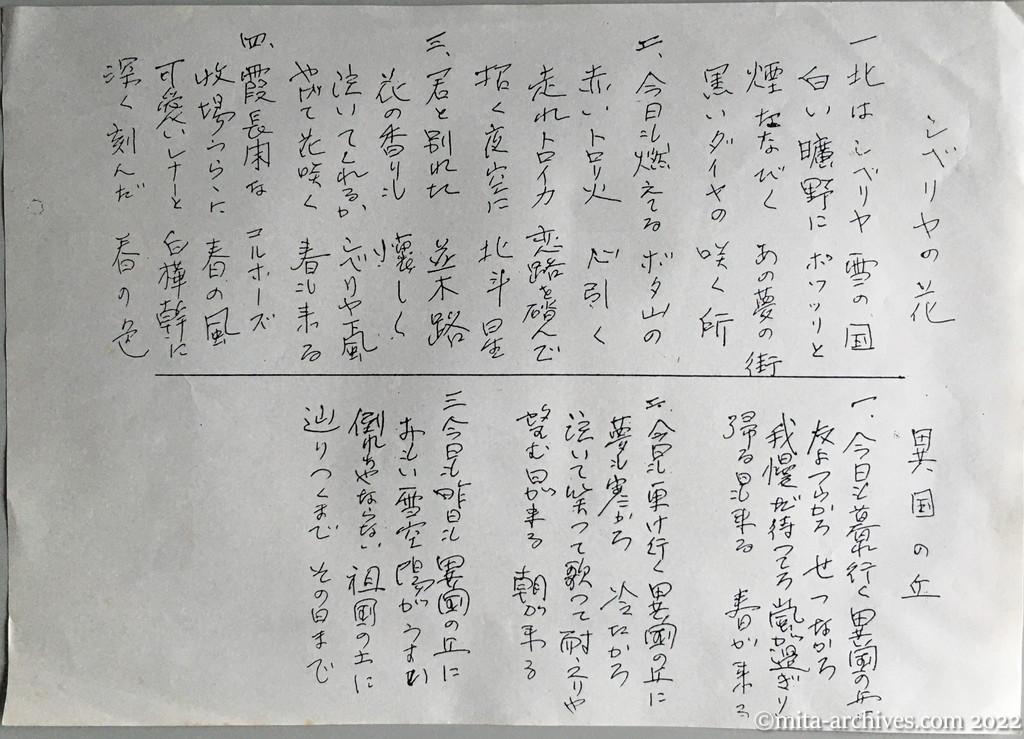 シベリヤの花
一 北はシベリヤ 雪の国
白い曠野に ポツリと
煙たなびく あの夢の街
黒いダイヤの 咲く所
二、今日も燃えてる ボタ山の
赤いトロリ火 心引く
走れトロイカ 恋路を踏んで
招く夜空に 北斗星
三、君と別れた 並木路
花の香りも 懐しく
泣いてくれるか、シベリヤ颪
やがて花咲く 春も来る
四、霞長閑な コルホーズ
牧場うらゝに 春の風
可愛いレナーと 白樺幹に
深く刻んだ 春の色
異国の丘
一、今日も暮れ行く異国の丘に
友よつらかろ せつなかろ
我慢だ待つてろ嵐が過ぎりや
帰る日も来る 春が来る
二、今日も更け行く異国の丘に
夢も寒かろ 冷たかろ
泣いて笑つて歌つて耐えりや
望む日が来る 朝が来る
三 今日も昨日も異国の丘に
おもい雪空陽がうすい
倒れちやならない祖国の土に
辿りつくまで その日まで
©mita-archives.com 2022